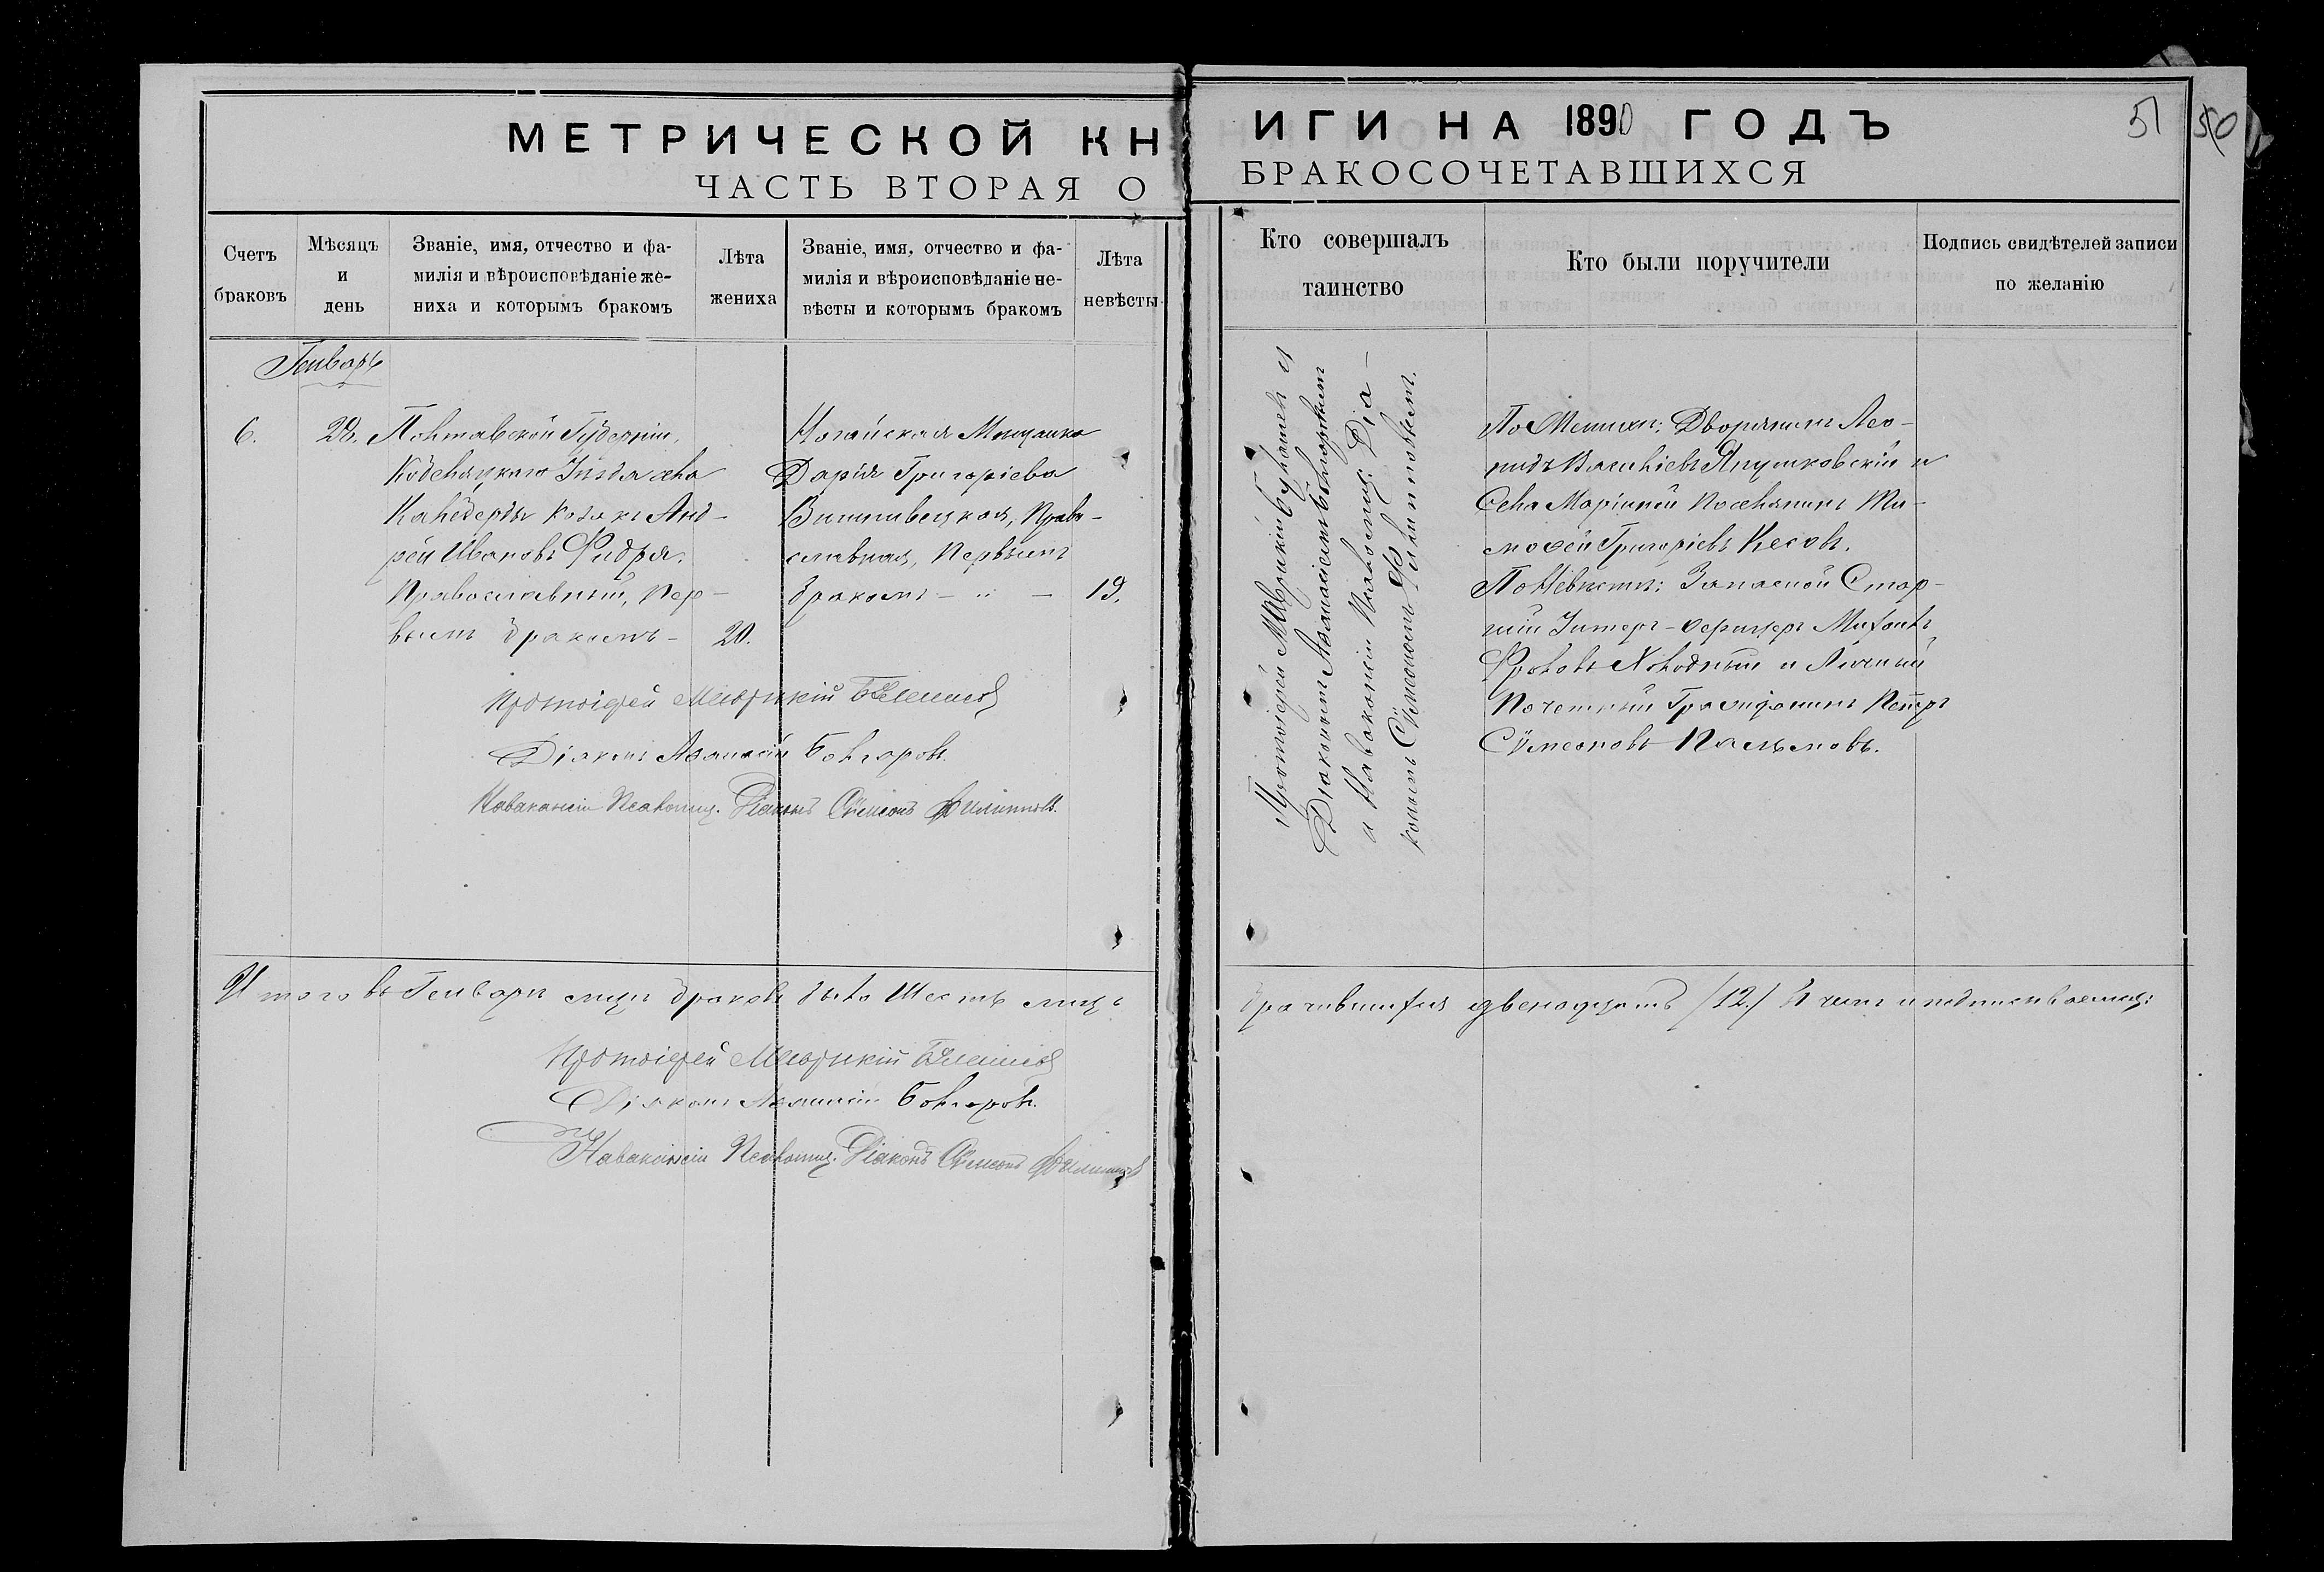 МЕТРИЧЕСКОЙ КНИГИ НА 1890 ГОДЪ
51 50
ЧАСТЬ ВТОРАЯ О БРАКОСОЧЕТАВШИХСЯ
Счетъ браковъ
Мѣсяцъ и день
Званіе, имя, отчество и фа-
милія и вѣроисповѣданіе же-
ниха и которымъ бракомъ
Лѣта жениха
Званіе, имя, отчество и фа-
милія и вѣроисповѣданіе не-
вѣсты и которымъ бракомъ
Лѣта невѣсты
Кто совершалъ таинство
Кто были поручители
Подпись свидѣтелей записи
по желанію
Генварь
6.
28.
Полтавской Губерніи,
Кобеляцкаго Уѣзда села
козакъ Анд-
рей Ивановъ Фидря.
Православный, Пер-
вымъ бракомъ -
20.
Ногайская Мѣщанка
Дарія Григоріева
Вишнивецкая, Право-
славная, Первымъ
бракомъ - " -
19.
Протоіерей
Діакономъ Афанасіемъ Болгоровымъ
и Псаломщ: Діа-
кономъ Сѵмеономъ Филипповымъ.
По Женихѣ: Дворянинъ Лео-
нидъ Васильевъ Япушковскій и
Села Маріиной Поселянинъ Ти-
мофей Григоріевъ Кесовъ.
По Невѣстѣ: Запасной Стар-
шій Унтеръ-Офицеръ Михаилъ
Фроловъ Холодный и Личный
Почетный Гражданинъ Петръ
Сѵмеоновъ
Протоіерей
Діаконъ Афанасій Болгоровъ.
Псаломщ. Діаконъ Сѵмеонъ Филипповъ.
Итого въ Генварѣ мцѣ браковъ было Шесть лицъ
брачившихся двенадцать /12./ В чемъ и подписываемся:
Протоіерей
Діаконъ Афанасій Болгоровъ.
Псаломщ. Діаконъ Сѵмеонъ Филипповъ